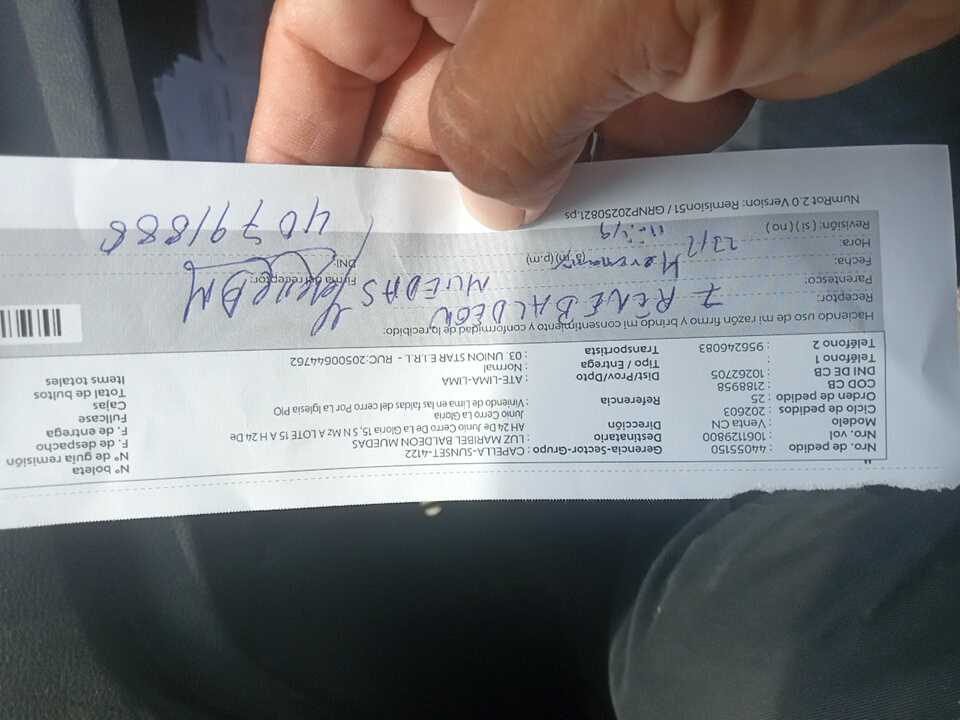 Nro. de pedido : 44055150
Nro. vol : 1061129800
Modelo : Venta CN
Ciclo de pedidos : 202603
Orden de pedido : 25
COD CB : 2188958
DNI DE CB : 10262705
Teléfono 1 :
Teléfono 2 : 956246083
Gerencia-Sector-Grupo : CAPELLA-SUNSET-4122
Destinatario : LUZ MARIBEL BALDEON NUEDAS
Dirección : AH 24 De Junio Cerro De La Gloria 15, S N Mz A LOTE 15 A H 24 De
Junio Cerro La Gloria
Referencia : Viniendo de Lima en las faldas del cerro Por La Iglesia PIO
Dist/Prov/Dpto : ATE-LIMA-LIMA
Tipo / Entrega : Normal
Transportista : 03 UNION STAR E.I.R.L - RUC:20500644762
Nº boleta
Nº de guía remisión
F. de despacho
F. de entrega
Fullcase
Cajas
Total de bultos
Items totales
Haciendo uso de mi razón firmo y brindo mi consentimiento y conformidad de lo recibido:
Receptor: RENE BALDEON
MUEDAS
Parentesco: Hermano
Fecha: 23/2
Hora: (a.m) (p.m)
Revisión: ( si ) ( no )
Firma del receptor:
DNI: 40791888
NumRot 2.0 Version: Remision51 / GRNP20250821.ps